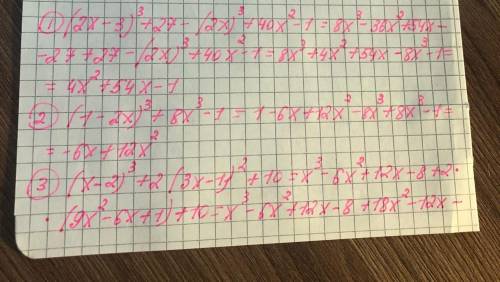 ① (2x-3)³+27-(2x)³+40x²-1=8x³-36x²+54x-
-27+27-(2x)³+40x²-1=8x³+4x²+54x-8x³-1=
=4x²+54x-1
② (1-2x)³+8x³-1=1-6x+12x²-8x³+8x³-1=
=-6x+12x²
③ (x-2)³+2(3x-1)²+10=x³-6x²+12x-8+2·
·(9x²-6x+1)+10=x³-6x²+12x-8+18x²-12x-